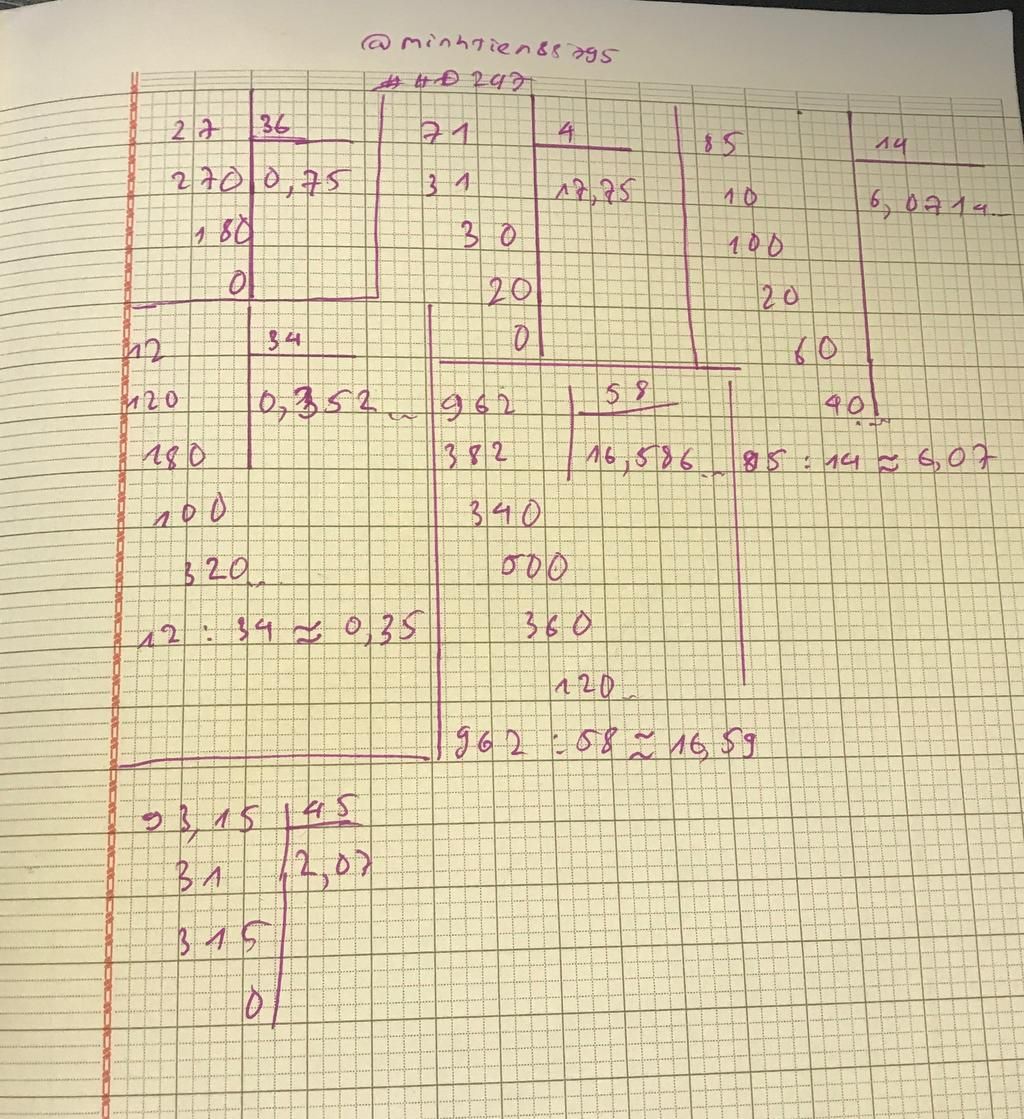 @minhTien88795
# 4D 247
27 36
270 0,75
180
0
71 4
31 17,75
30
20
0
85 14
10 6,0714...
100
20
60
40...
85 : 14 ≈ 6,07
12 34
120 0,352...
180
100
320...
12 : 34 ≈ 0,35
962 58
382 16,586...
340
500
360
120...
962 : 58 ≈ 16,59
93,15 45
31 2,07
315
0